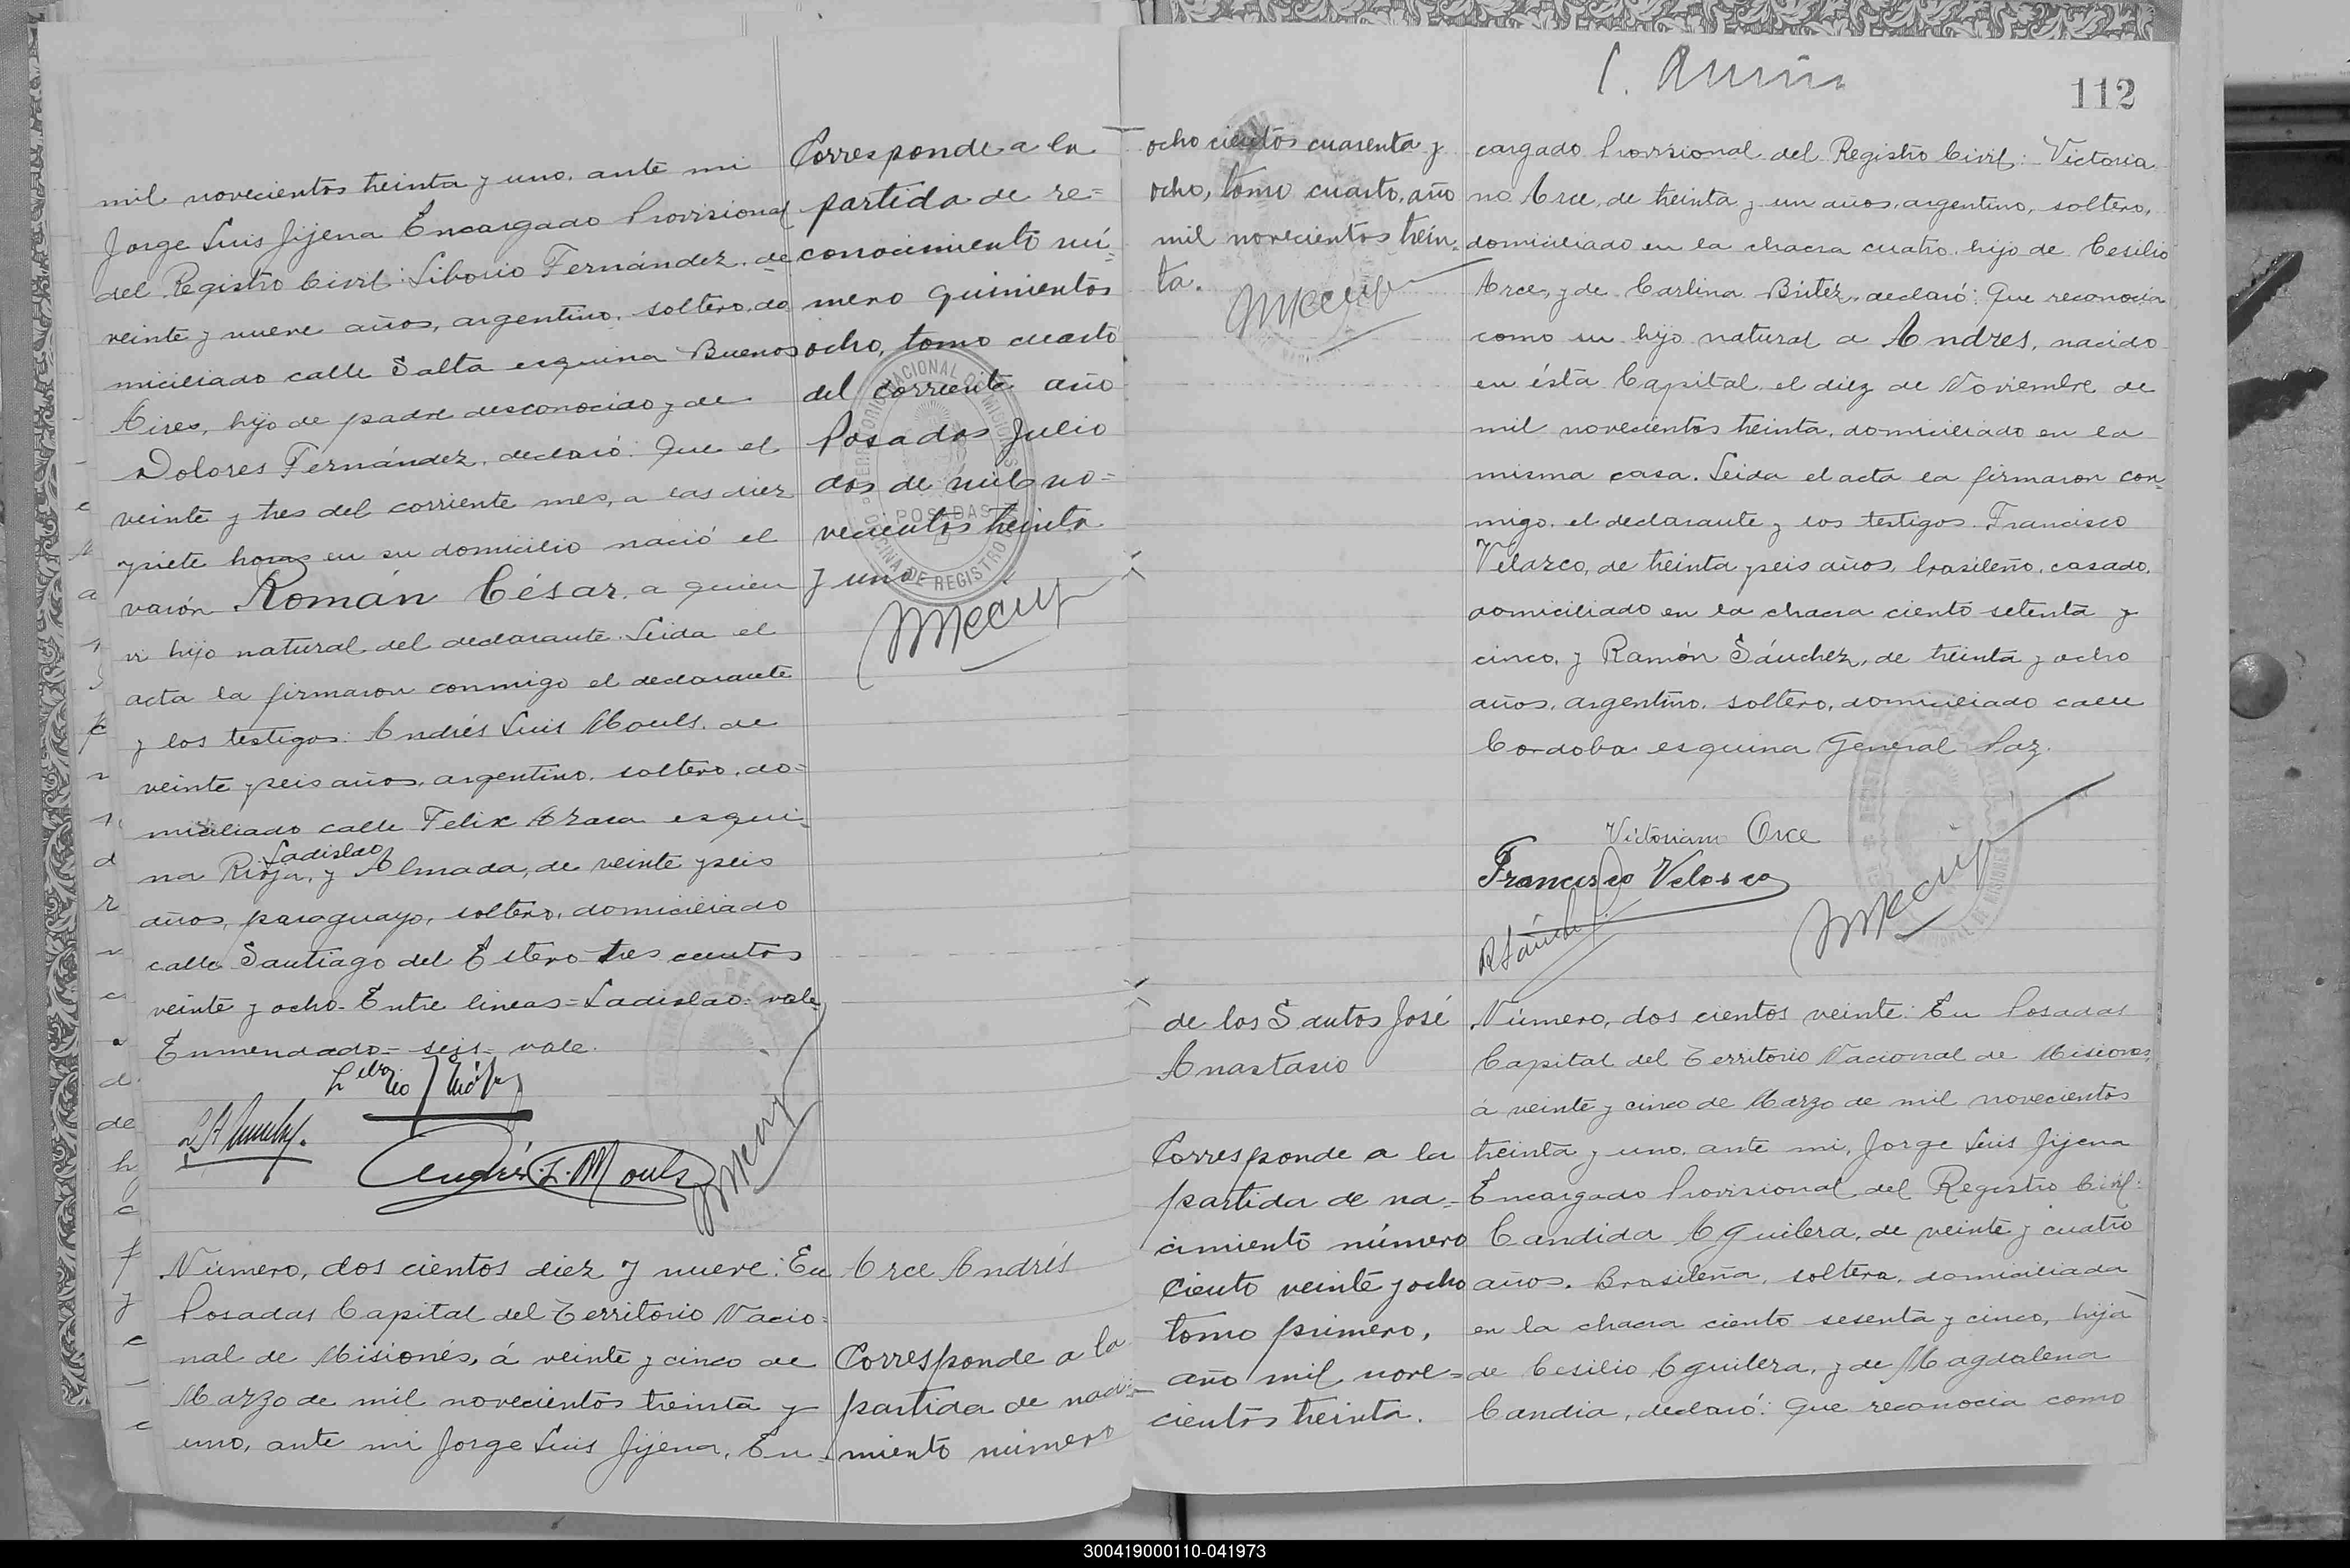 mil novecientos treinta y uno, ante mi
Jorge Luis Jijena Encargado Provisional
del Registro Civil: Liborio Fernández, de
veinte y nueve años, argentino, soltero, do
miciliado calle Salta esquina Buenos
Aires, hijo de padre desconocido y de
Dolores Fernández, declaró: Que el
veinte y tres del corriente mes, a las diez
y siete horas en su domicilio nació el
varón Román César, a quien
hijo natural del declarante. Leida el
acta la firmaron conmigo el declarante
y los testigos: Andrés Luis Mouls, de
veinte y seis años, argentino, soltero, do=
miciliado calle Felix Azara esqui=
na Rioja, y Ladislao Almada, de veinte y seis
años, paraguayo, soltero, domiciliado
calle Santiago del Estero tres cientos
veinte y ocho. Entre lineas = Ladislao = vale
Enmendado = seis = vale.
Andrés L. Mouls
Corresponde a la
partida de re=
conocimiento nú=
mero quinientos
ocho, tomo cuarto
del corriente año
Posadas Julio
dos de mil no=
vecientos treinta
y uno
TERRITORIO NACIONAL DE MISIONES
POSADAS
OFICINA DE REGISTRO
Número, dos cientos diez y nueve: En
Posadas Capital del Territorio Nacio=
nal de Misiones, á veinte y cinco de
Marzo de mil novecientos treinta y
uno, ante mi Jorge Luis Jijena, En=
Arce Andrés
Corresponde a la
partida de naci=
miento número
112
ocho cientos cuarenta y
ocho, tomo cuarto, año
mil novecientos trein=
ta.
cargado Provisional del Registro Civil: Victoria
no Arce, de treinta y un años, argentino, soltero,
domiciliado en la chacra cuatro, hijo de Cesilio
Arce, y de Carlina Britez, declaró: Que reconocia
como su hijo natural a Andres, nacido
en ésta Capital, el diez de Noviembre de
mil novecientos treinta, domiciliado en la
misma casa. Leida el acta la firmaron con
migo, el declarante y los testigos: Francisco
Velazco, de treinta y seis años, brasileño, casado,
domiciliado en la chacra ciento setenta y
cinco, y Ramón Sánchez, de treinta y ocho
años, argentino, soltero, domiciliado calle
Cordoba esquina General Paz.
Victoriano Arce
Francisco Velosco
R Sánchez
de los Santos José
Anastasio
Corresponde a la
partida de na=
cimiento número
ciento veinte y ocho
tomo primero,
año mil nove=
cientos treinta.
Número, dos cientos veinte: En Posadas
Capital del Territorio Nacional de Misiones,
á veinte y cinco de Marzo de mil novecientos
treinta y uno, ante mi, Jorge Luis Jijena
Encargado Provisional del Registro Civil:
Candida Aguilera, de veinte y cuatro
años, brasileña, soltera, domiciliada
en la chacra ciento sesenta y cinco, hija
de Cesilio Aguilera, y de Magdalena
Candia, declaró: Que reconocia como
300419000110-041973